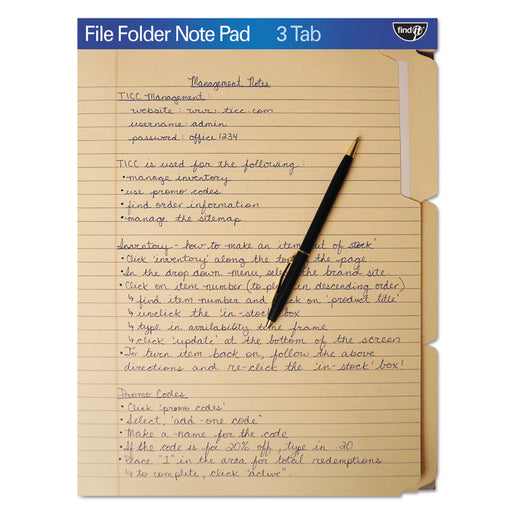 File Folder Note Pad 3 Tab
find it
Management Notes
TICC Management:
website: www.ticc.com
username: admin
password: office1234
TICC is used for the following:
• manage inventory
• use promo codes
• find order information
• manage the sitemap
Inventory - how to make an item out of stock'
• Click 'inventory' along the top of the page.
• In the drop down menu, select the brand site.
• Click on item number (to place in descending order)
↳ find item number and click on 'product title'
↳ unclick the 'in-stock' box
↳ type in availability time frame
↳ click 'update' at the bottom of the screen
• To turn item back on, follow the above
directions and re-click the 'in-stock' box!
Promo Codes
• Click 'promo codes'
• Select, "add-one code"
• Make a name for the code
• If the code is for 20% off, type in 20
• Place "1" in the area for total redemptions
↳ to complete, click "active".